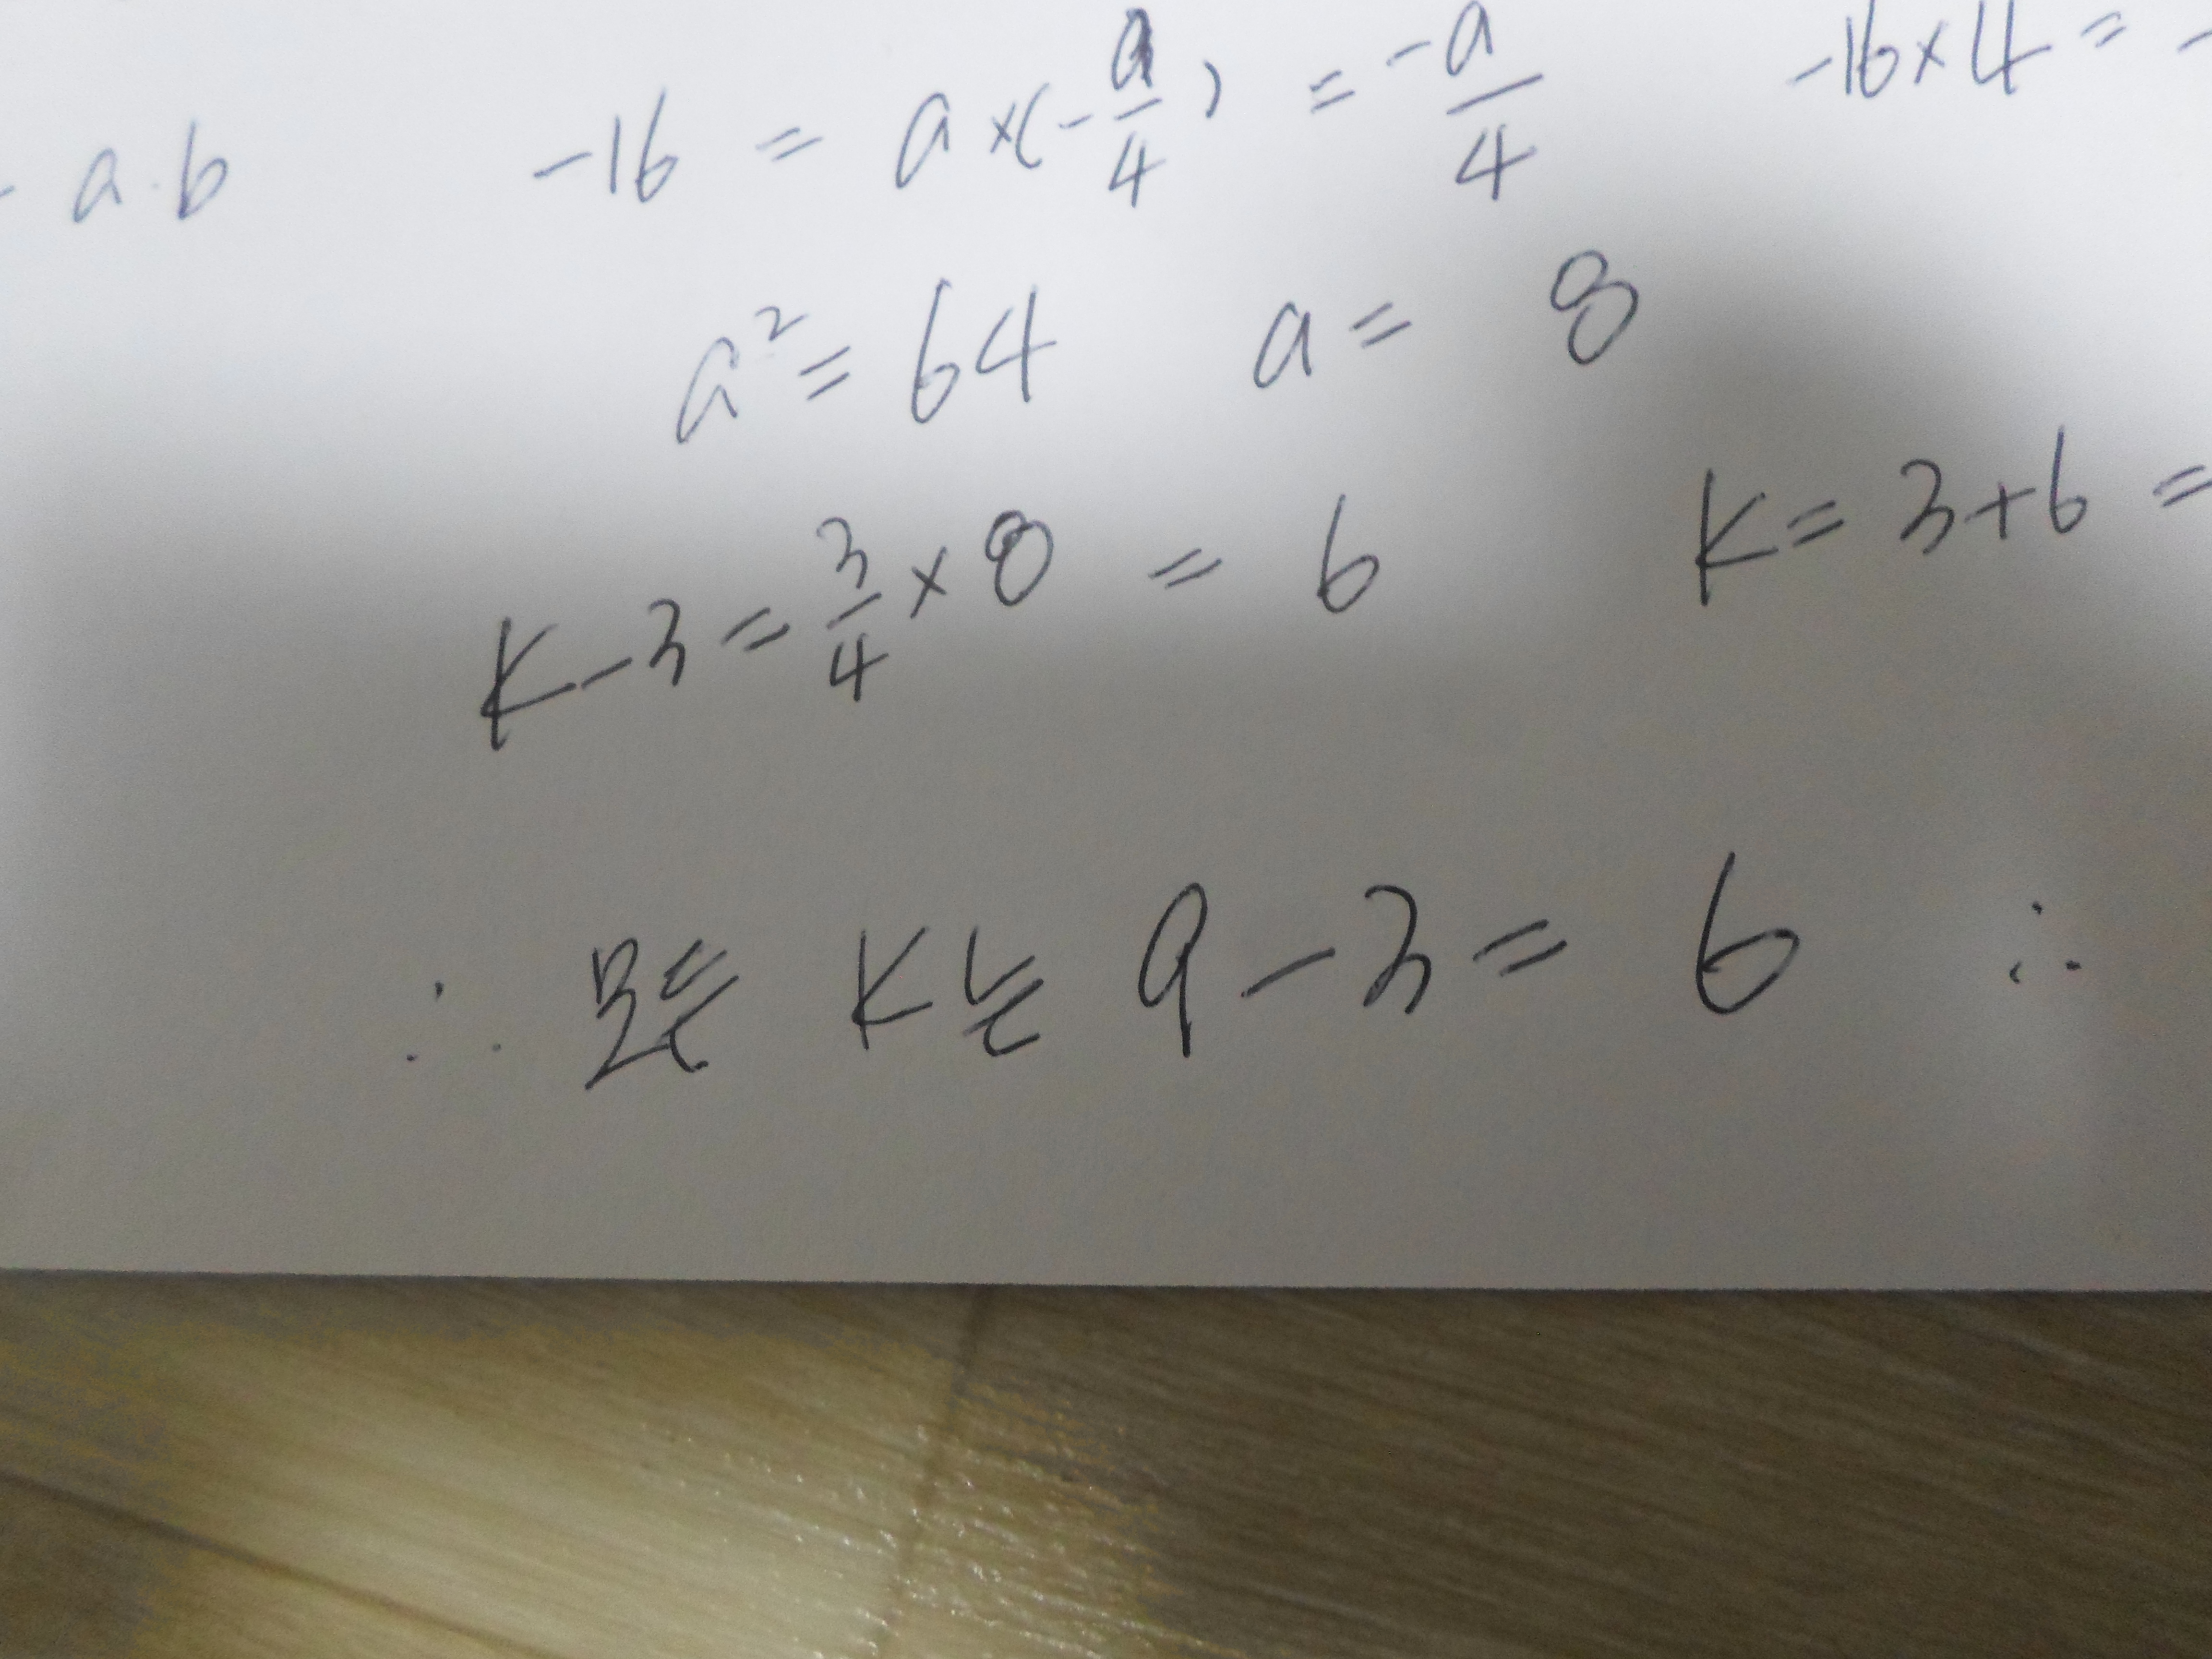 a.b -16 = a×(-a/4) = -a/4 -16×4 = -
a² = 64 a = 8
K-3 = 3/4 × 8 = 6 K = 3+6 =
∴ 모든 K는 9-3 = 6 ∴